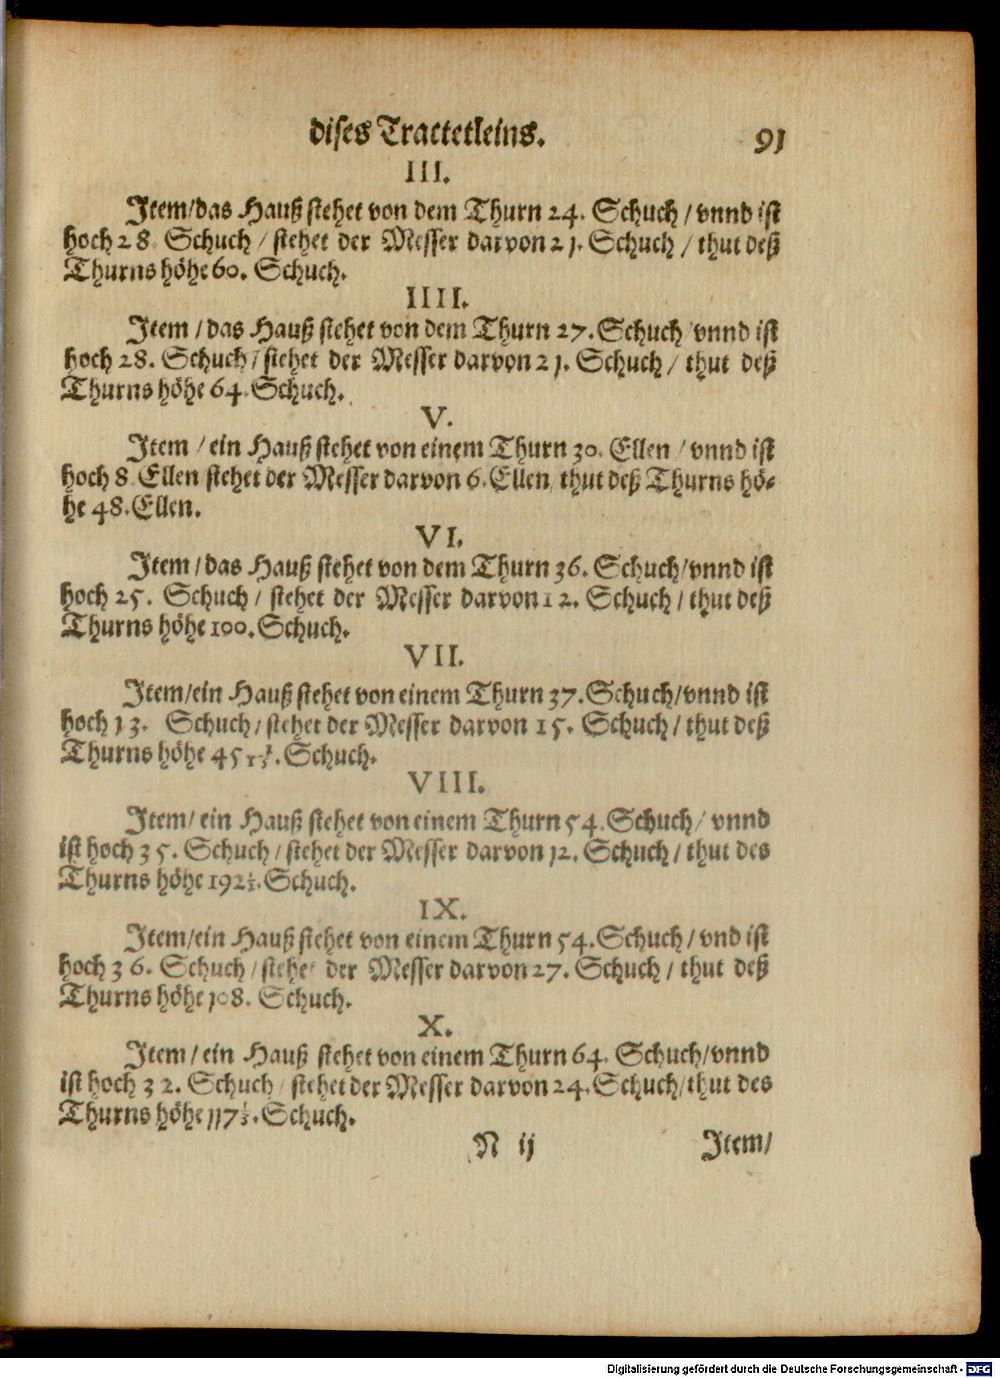 dises Tractetleins. 91
III.
Item/das Hauß stehet von dem Thurn 24. Schuch / vnnd ist
hoch 28 Schuch / stehet der Messer darvon 21. Schuch / thut deß
Thurns höhe 60. Schuch.
IIII.
Item / das Hauß stehet von dem Thurn 27. Schuch / vnnd ist
hoch 28. Schuch / stehet der Messer darvon 21. Schuch / thut deß
Thurns höhe 64. Schuch.
V.
Item / ein Hauß stehet von einem Thurn 30. Ellen / vnnd ist
hoch 8 Ellen stehet der Messer darvon 6. Ellen, thut deß Thurns hö-
he 48. Ellen.
VI.
Item / das Hauß stehet von dem Thurn 36. Schuch/vnnd ist
hoch 25. Schuch / stehet der Messer darvon 12. Schuch / thut deß
Thurns höhe 100. Schuch.
VII.
Item/ein Hauß stehet von einem Thurn 37. Schuch/vnnd ist
hoch 13. Schuch / stehet der Messer darvon 15. Schuch / thut deß
Thurns höhe 45 1/15. Schuch.
VIII.
Item/ ein Hauß stehet von einem Thurn 54. Schuch / vnnd
ist hoch 35. Schuch / stehet der Messer darvon 12. Schuch / thut des
Thurns höhe 192½. Schuch.
IX.
Item/ein Hauß stehet von einem Thurn 54. Schuch / vnd ist
hoch 36. Schuch / stehet der Messer darvon 27. Schuch / thut deß
Thurns höhe 108. Schuch.
X.
Item / ein Hauß stehet von einem Thurn 64. Schuch/vnnd
ist hoch 32. Schuch / stehet der Messer darvon 24. Schuch/thut des
Thurns höhe 117⅓. Schuch.
N ij Item/
Digitalisierung gefördert durch die Deutsche Forschungsgemeinschaft - DFG